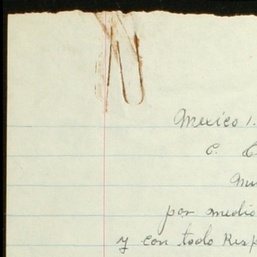 Mexico 1.
C.
por medio
y con todo Resp